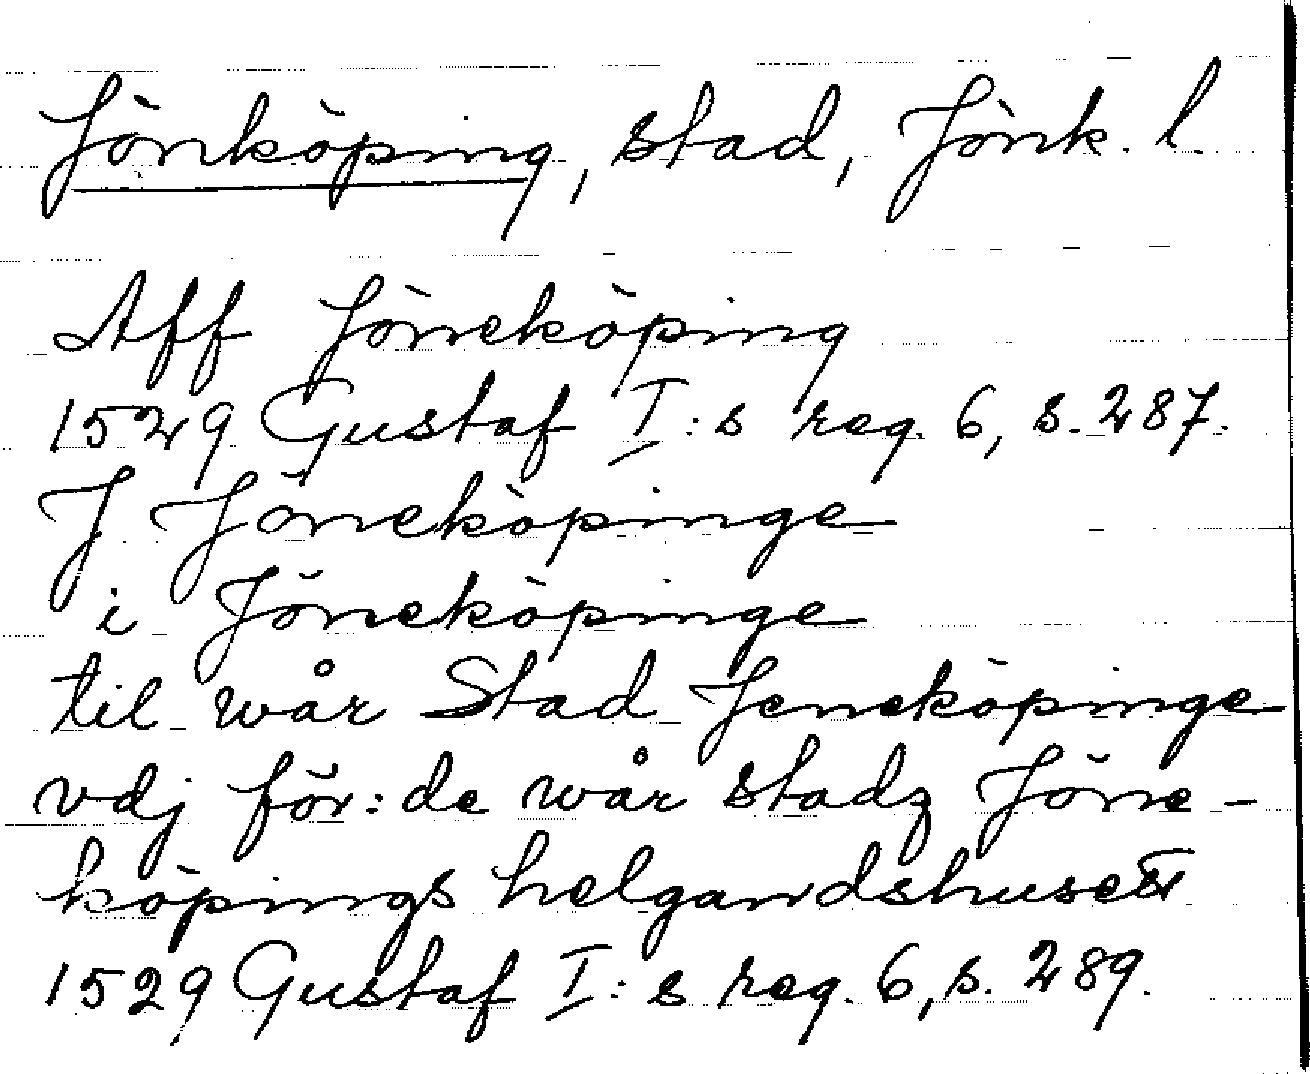 Jönköping, stad, Jönk. l.
Aff Jöneköping
1529 Gustaf I:s reg. 6, s. 287.
J Jöneköpinge
i Jöneköpinge
til wår Stad Jeneköpinge
vdj för:de wår stadz Jöne-
köpings helgandshusett
1529 Gustaf I:s reg. 6, s. 289.